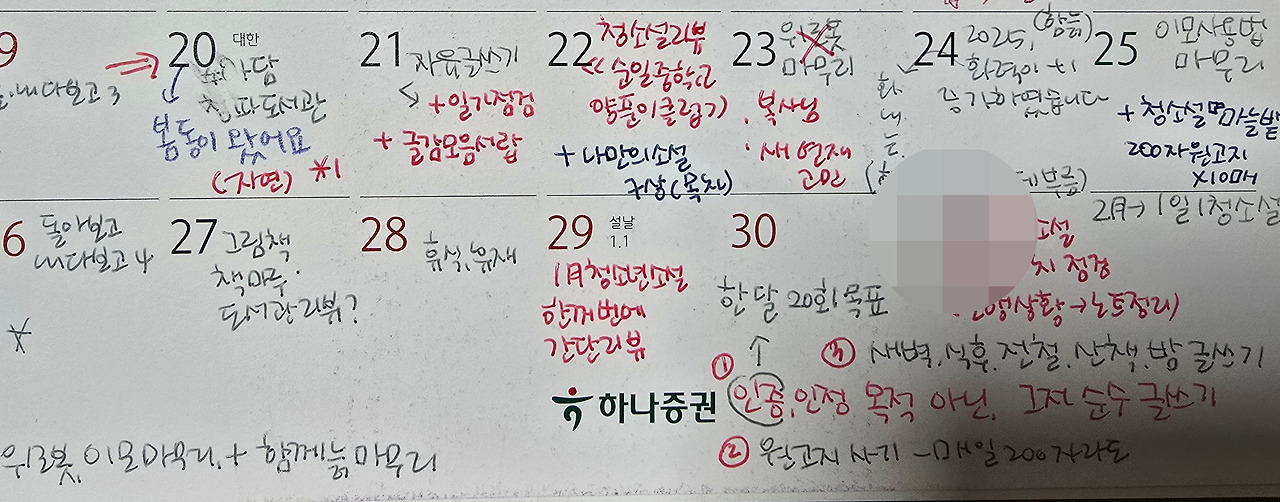 9
내다보고 3
20 대한
가담
파도서관
봄동이 왔어요
(자연) *1
21 자유글쓰기
+일기점검
+ 글감모음서랍
22 청소설리뷰
<< 순일중학교
양푼이클럽기)
+ 나만의소설
구상(목차)
23 위로봇
마무리
· 복사님
· 새 연재
고민
24 2025, (함늙)
화력이 +1
증가하였습니다
25 이모사용법
마무리
+ 청소설 마늘밭
200자원고지
x10매
6 돌아보고
내다보고 4
27 그림책
책마루·
도서관리뷰?
28 휴식, 유재
29 설날
1.1
1月청소년소설
한꺼번에
간단리뷰
30
한달 20회 목표
소설
점검
상황→노트정리)
2月→ 1일1청소설
① ↑ ③ 새벽, 식후, 전철, 산책, 밤 글쓰기
하나증권
인증, 인정 목적 아닌, 그저 순수 글쓰기
② 원고지 사기 - 매일 200자라도
위로봇, 이모마무리, + 함께늙 마무리